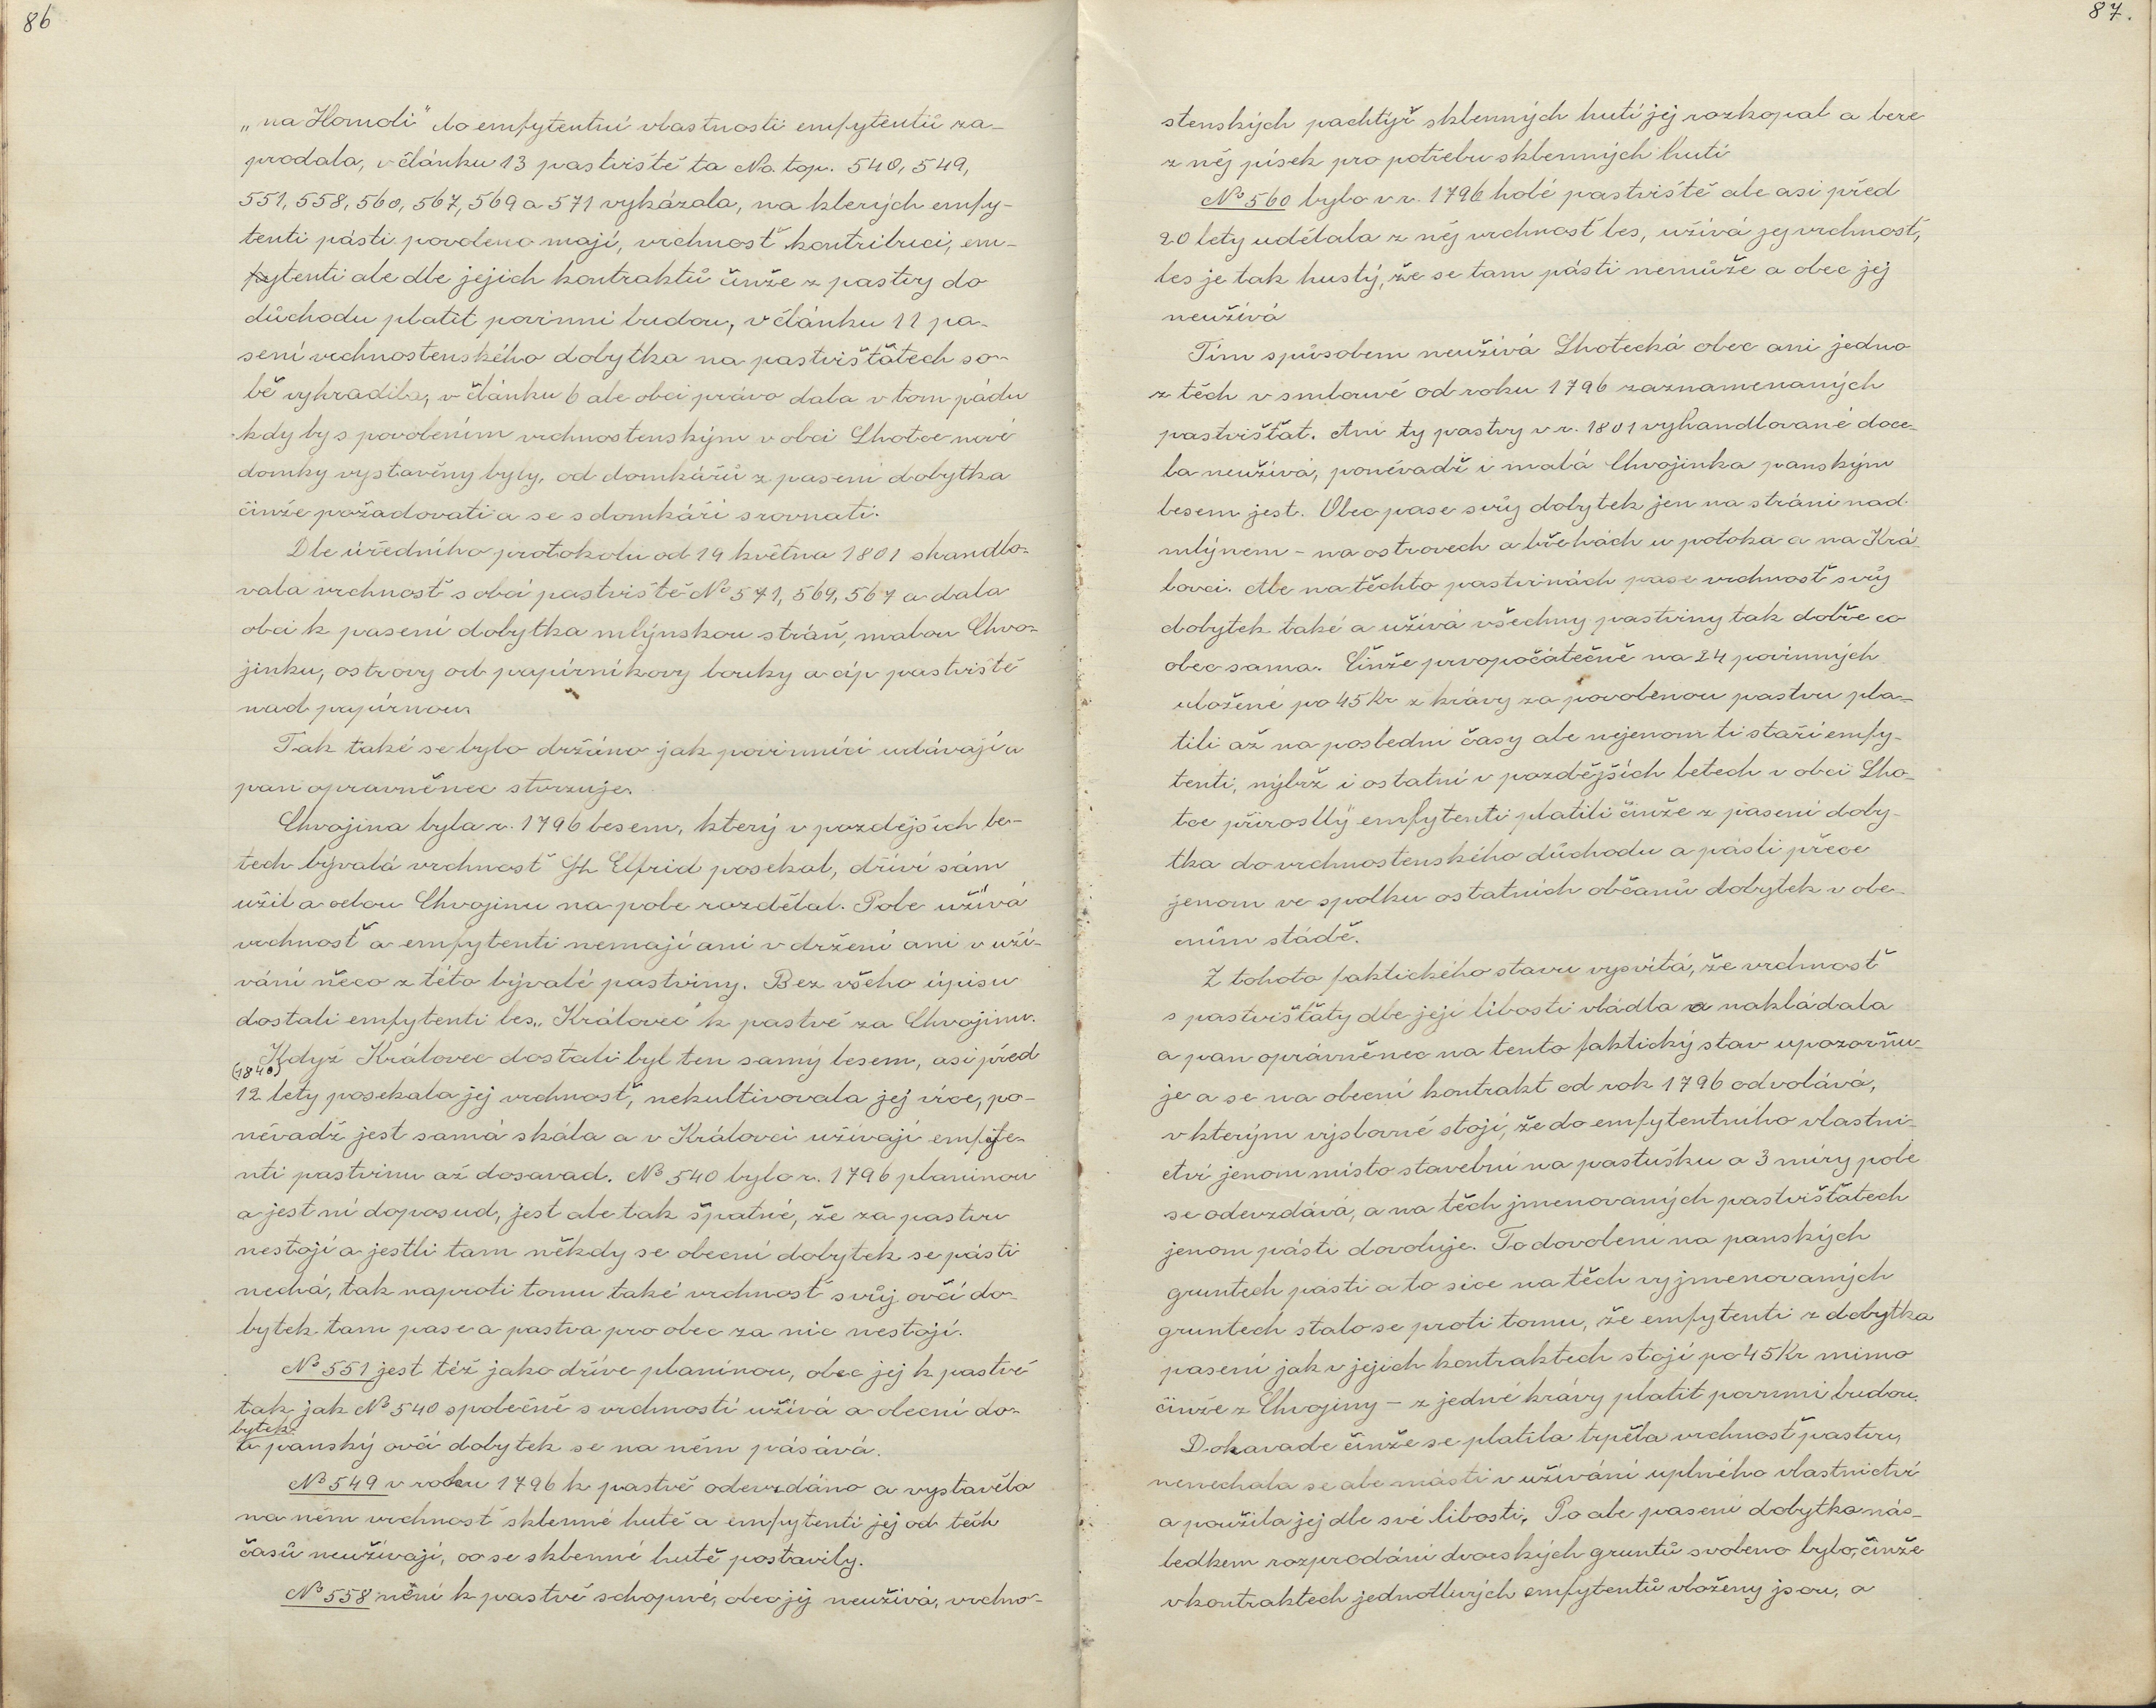 86
„na Homoli" do emfytentní vlastnosti emfytentů za-
prodala, v článku 13 pastviště ta No. top. 540, 549,
551, 558, 560, 567, 569 a 571 vykázala, na kterých emfy-
tenti pásti povoleno mají, vrchnosť kontribuci, em-
fytenti ale dle jejich kontraktů činže z pastvy do
důchodu platit povinni budou, v článku 11 pa-
sení vrchnostenského dobytka na pastvišťatech so-
bě vyhradila, v článku 6 ale obci právo dala v tom pádu
kdy by s povolením vrchnostenským v obci Lhotce nové
domky vystavěny byly, od domkářů z pasení dobytka
činže požadovati a se s domkáři srovnati.
Dle úředního protokolu od 14 května 1801 shandlo-
vala vrchnosť s obcí pastviště No 571, 569, 567 a dala
obci k pasení dobytka mlýnskou stráň, malou Chvo-
jinku, ostrovy od papírníkovy louky a cíp pastviště
nad papírnou.
Tak také se bylo držáno jak povinníci udávají a
pan oprávněnec stvrzuje.
Chvojina byla r. 1796 lesem, který v pozdějších le-
tech bývalá vrchnosť Jh Elfrid posekal, dříví sám
užil a celou Chvojinu na pole rozdělal. Pole užívá
vrchnosť a emfytenti nemají ani v držení ani v uží-
vání něco z této bývalé pastviny. Bez všeho úpisu
dostali emfytenti les „Královec" k pastvě za Chvojinu.
Když Královec dostali byl ten samý lesem, asi před
(1840)
12 lety posekala jej vrchnosť, nekultivovala jej více, po-
něvadž jest samá skála a v Královci užívají emfyte-
nti pastvinu až dosavad. No 540 bylo r. 1796 planinou
a jest ní doposud, jest ale tak špatné, že za pastvu
nestojí a jestli tam někdy se obecní dobytek se pásti
nechá, tak naproti tomu také vrchnosť svůj ovčí do-
bytek tam pase a pastva pro obec za nic nestojí.
No 551 jest též jako dříve planinou, obec jej k pastvě
tak jak No 540 společně s vrchností užívá a obecní do-
bytek
a panský ovčí dobytek se na něm pásává.
No 549 v roku 1796 k pastvě odevzdáno a vystavěla
na něm vrchnosť sklenné hutě a emfytenti jej od těch
časů neužívají, co se sklenné hutě postavily.
No 558 není k pastvě schopné, obec jej neužívá, vrchno-
87.
stenských pachtýř sklenných hutí jej rozkopal a bere
z něj písek pro potřebu sklenných hutí
No 560 bylo v r. 1796 holé pastviště ale asi před
20 lety udělala z něj vrchnosť les, užívá jej vrchnosť,
les je tak hustý, že se tam pásti nemůže a obec jej
neužívá
Tím spůsobem neužívá Lhotecká obec ani jedno
z těch v smlouvě od roku 1796 zaznamenaných
pastvišťat. Ani ty pastvy v r. 1801 vyhandlované doce-
la neužívá, poněvadž i malá Chvojinka panským
lesem jest. Obec pase svůj dobytek jen na stráni nad
mlýnem – na ostrovech a břehách u potoka a na Krá-
lovci. Ale na těchto pastvinách pase vrchnosť svůj
dobytek také a užívá všechny pastviny tak dobře co
obec sama. Činže prvopočátečně na 24 povinných
uložené po 45 Kr z krávy za povolenou pastvu pla-
tili až na poslední časy ale nejenom ti staří emfy-
tenti, nýbrž i ostatní v pozdějších letech v obci Lho-
tce přirostlý emfytenti platili činže z pasení doby-
tka do vrchnostenského důchodu a pásli přece
jenom ve spolku ostatních občanů dobytek v obe-
cním stádě.
Z tohoto faktického stavu vysvítá, že vrchnosť
s pastvišťaty dle její libosti vládla a nakládala
a pan oprávněnec na tento faktický stav upozorňu-
je a se na obecní kontrakt od rok 1796 odvolává,
v kterým výslovně stojí, že do emfytentního vlastni-
ctví jenom místo stavební na pastušku a 3 míry pole
se odevzdává, a na těch jmenovaných pastvišťatech
jenom pásti dovoluje. To dovolení na panských
gruntech pásti a to sice na těch vyjmenovaných
gruntech stalo se proti tomu, že emfytenti z dobytka
pasení jak v jejich kontraktech stojí po 45 Kr mimo
činže z Chvojiny – z jedné krávy platit povinni budou.
Dokavade činže se platila trpěla vrchnosť pastvu,
nenechala se ale másti v užívání uplného vlastnictví
a použila jej dle své libosti. Po ale pasení dobytka nás-
ledkem rozprodání dvorských gruntů svoleno bylo, činže
v kontraktech jednotlivých emfytentů vloženy jsou, a